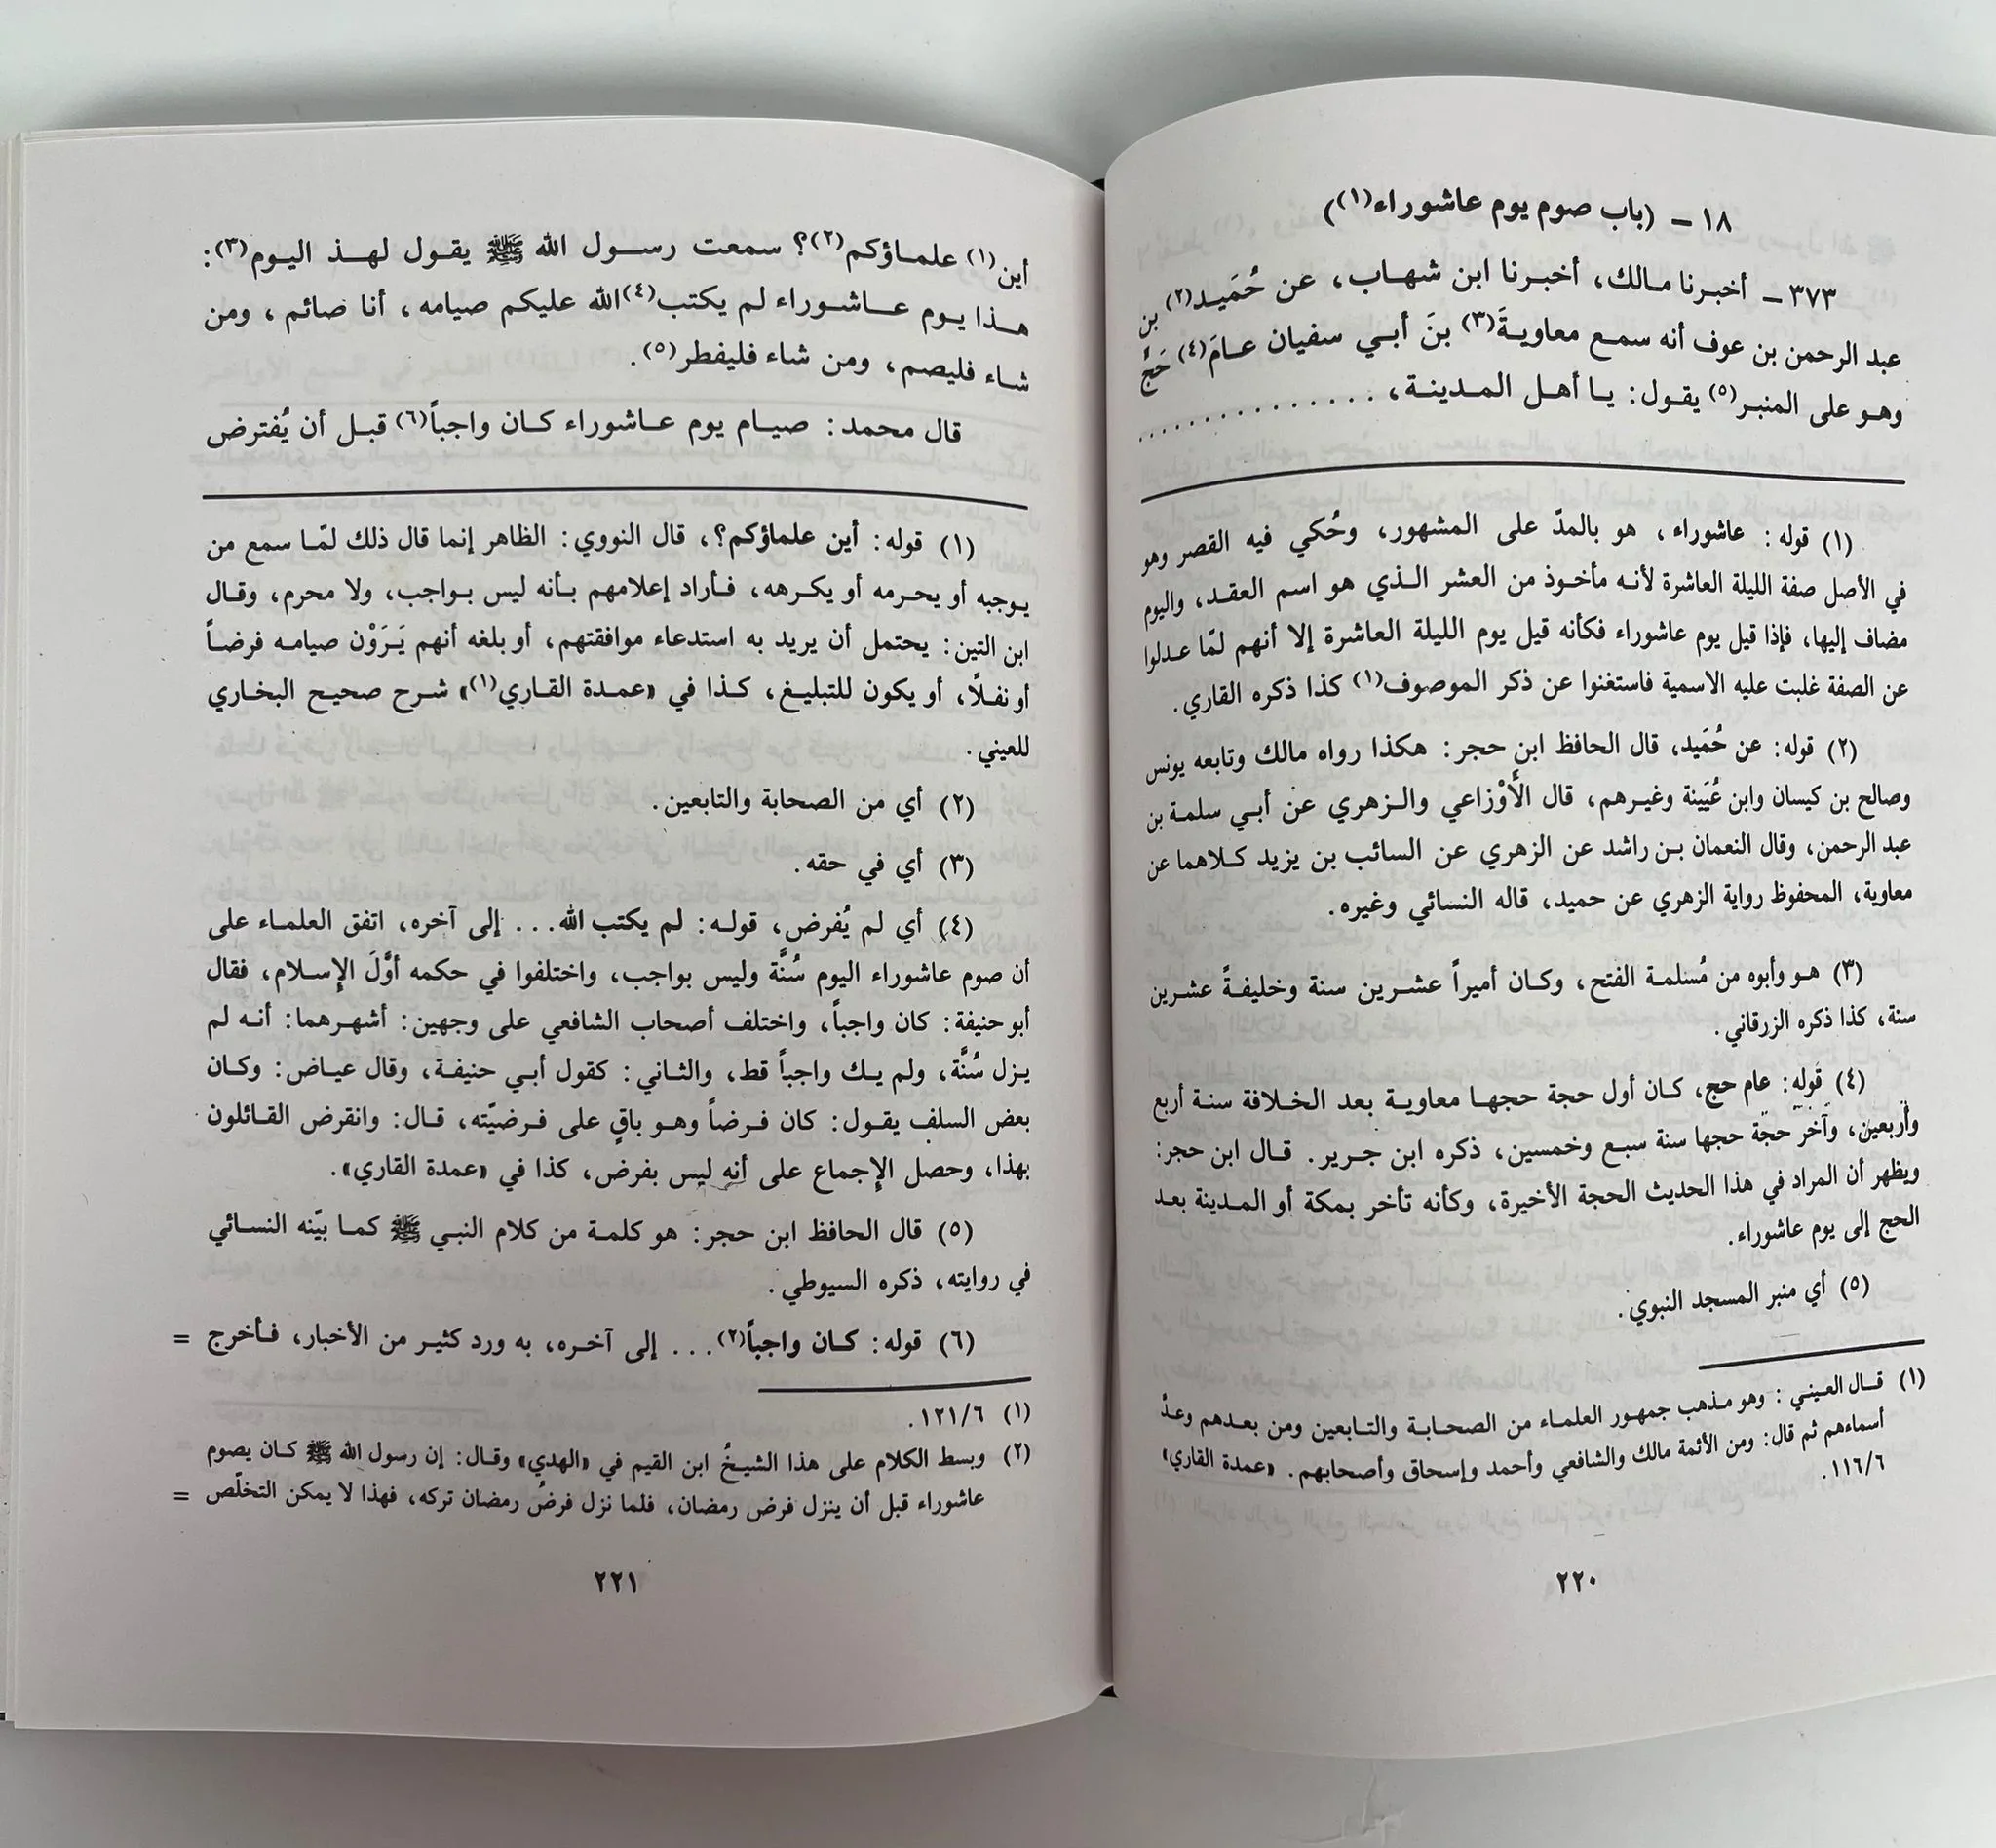 ١٨ - (باب صوم يوم عاشوراء(١))
٣٧٣ - أخبرنا مالك، أخبرنا ابن شهاب، عن حُمَيد(٢) بن
عبد الرحمن بن عوف أنه سمع معاويةَ(٣) بنَ أبي سفيان عامَ(٤) حَجَّ
وهو على المنبر(٥) يقول: يا أهل المدينة، .............
(١) قوله: عاشوراء، هو بالمدّ على المشهور، وحُكي فيه القصر وهو
في الأصل صفة الليلة العاشرة لأنه مأخوذ من العشر الذي هو اسم العقد، واليوم
مضاف إليها، فإذا قيل يوم عاشوراء فكأنه قيل يوم الليلة العاشرة إلا أنهم لمّا عدلوا
عن الصفة غلبت عليه الاسمية فاستغنوا عن ذكر الموصوف(١) كذا ذكره القاري.
(٢) قوله: عن حُمَيد، قال الحافظ ابن حجر: هكذا رواه مالك وتابعه يونس
وصالح بن كيسان وابن عُيَينة وغيرهم، قال الأَوْزاعي والزهري عن أبي سلمة بن
عبد الرحمن، وقال النعمان بن راشد عن الزهري عن السائب بن يزيد كلاهما عن
معاوية، المحفوظ رواية الزهري عن حميد، قاله النسائي وغيره.
(٣) هو وأبوه من مُسلمة الفتح، وكان أميراً عشرين سنة وخليفةً عشرين
سنة، كذا ذكره الزرقاني.
(٤) قوله: عام حج، كان أول حجة حجها معاوية بعد الخلافة سنة أربع
وأربعين، وآخر حجة حجها سنة سبع وخمسين، ذكره ابن جرير. قال ابن حجر:
ويظهر أن المراد في هذا الحديث الحجة الأخيرة، وكأنه تأخر بمكة أو المدينة بعد
الحج إلى يوم عاشوراء.
(٥) أي منبر المسجد النبوي.
(١) قال العيني: وهو مذهب جمهور العلماء من الصحابة والتابعين ومن بعدهم وعدَّ
أسماءهم ثم قال: ومن الأئمة مالك والشافعي وأحمد وإسحاق وأصحابهم. «عمدة القاري»
١١٦/٦.
٢٢٠
أين(١) علماؤكم(٢)؟ سمعت رسول الله ﷺ يقول لهذ اليوم(٣):
هذا يوم عاشوراء لم يكتب(٤) الله عليكم صيامه، أنا صائم، ومن
شاء فليصم، ومن شاء فليفطر(٥).
قال محمد: صيام يوم عاشوراء كان واجباً(٦) قبل أن يُفترض
(١) قوله: أين علماؤكم؟، قال النووي: الظاهر إنما قال ذلك لمّا سمع من
يوجبه أو يحرمه أو يكرهه، فأراد إعلامهم بأنه ليس بواجب، ولا محرم، وقال
ابن التين: يحتمل أن يريد به استدعاء موافقتهم، أو بلغه أنهم يَرَوْن صيامه فرضاً
أو نفلًا، أو يكون للتبليغ، كذا في «عمدة القاري(١)» شرح صحيح البخاري
للعيني.
(٢) أي من الصحابة والتابعين.
(٣) أي في حقه.
(٤) أي لم يُفرض، قوله: لم يكتب الله... إلى آخره، اتفق العلماء على
أن صوم عاشوراء اليوم سُنَّة وليس بواجب، واختلفوا في حكمه أوَّلَ الإِسلام، فقال
أبو حنيفة: كان واجباً، واختلف أصحاب الشافعي على وجهين: أشهرهما: أنه لم
يزل سُنَّة، ولم يك واجباً قط، والثاني: كقول أبي حنيفة، وقال عياض: وكان
بعض السلف يقول: كان فرضاً وهو باقٍ على فرضيّته، قال: وانقرض القائلون
بهذا، وحصل الإِجماع على أنه ليس بفرض، كذا في «عمدة القاري».
(٥) قال الحافظ ابن حجر: هو كلمة من كلام النبي ﷺ كما بيّنه النسائي
في روايته، ذكره السيوطي.
(٦) قوله: كان واجباً(٢)... إلى آخره، به ورد كثير من الأخبار، فأخرج =
(١) ١٢١/٦.
(٢) وبسط الكلام على هذا الشيخُ ابن القيم في «الهدي» وقال: إن رسول الله ﷺ كان يصوم
عاشوراء قبل أن ينزل فرض رمضان، فلما نزل فرضُ رمضان تركه، فهذا لا يمكن التخلّص =
٢٢١